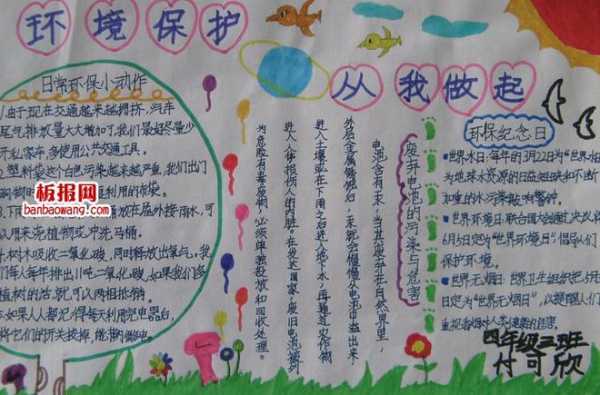 环境保护
从我做起
日常环保小动作
1由于现在交通越来越拥挤,汽车
尾气排放量大大增加了,我们最好尽量少
开私家车,多使用公共交通工具。
2.塑料袋这个白色污染越来越严重,我们出门
利用的布袋。
板报网
banbaowang.com
放在屋外接雨水,可
以用来浇植物或冲洗马桶。
木吸收二氧化碳,同时释放出氧气,我
们每人每年排出
二氧化碳,如果我们多
植树的话,就可以两相抵销。
如果人人都记得每天利用完电器后
将它们的开关拔掉,能
废弃电池的污染与危害
电池含有汞,当其废弃在自然界里,
外层金属锈蚀后,汞就会慢慢从电池中溢出来,
进入土壤或在
作用之后进入地下水,再通过农作物
进入人体损伤人的肾脏。在我
国家,废旧电池被列
为危险有毒废物,必须单独投放和回收处理。
环保纪念日
世界水日:每年的3月22日为“世界水
为地球水资源的日益
和不断
加重的水污染敲响警钟。
世界环境日:联合国大会通过决议将
6月5日定为“世界环境日”,倡导人们
保护环境。
世界无烟日:世界卫生组织把5月
日定为“世界无烟日”,以提醒人们
重视香烟对人类健康的危害。
四年级三班
付可欣